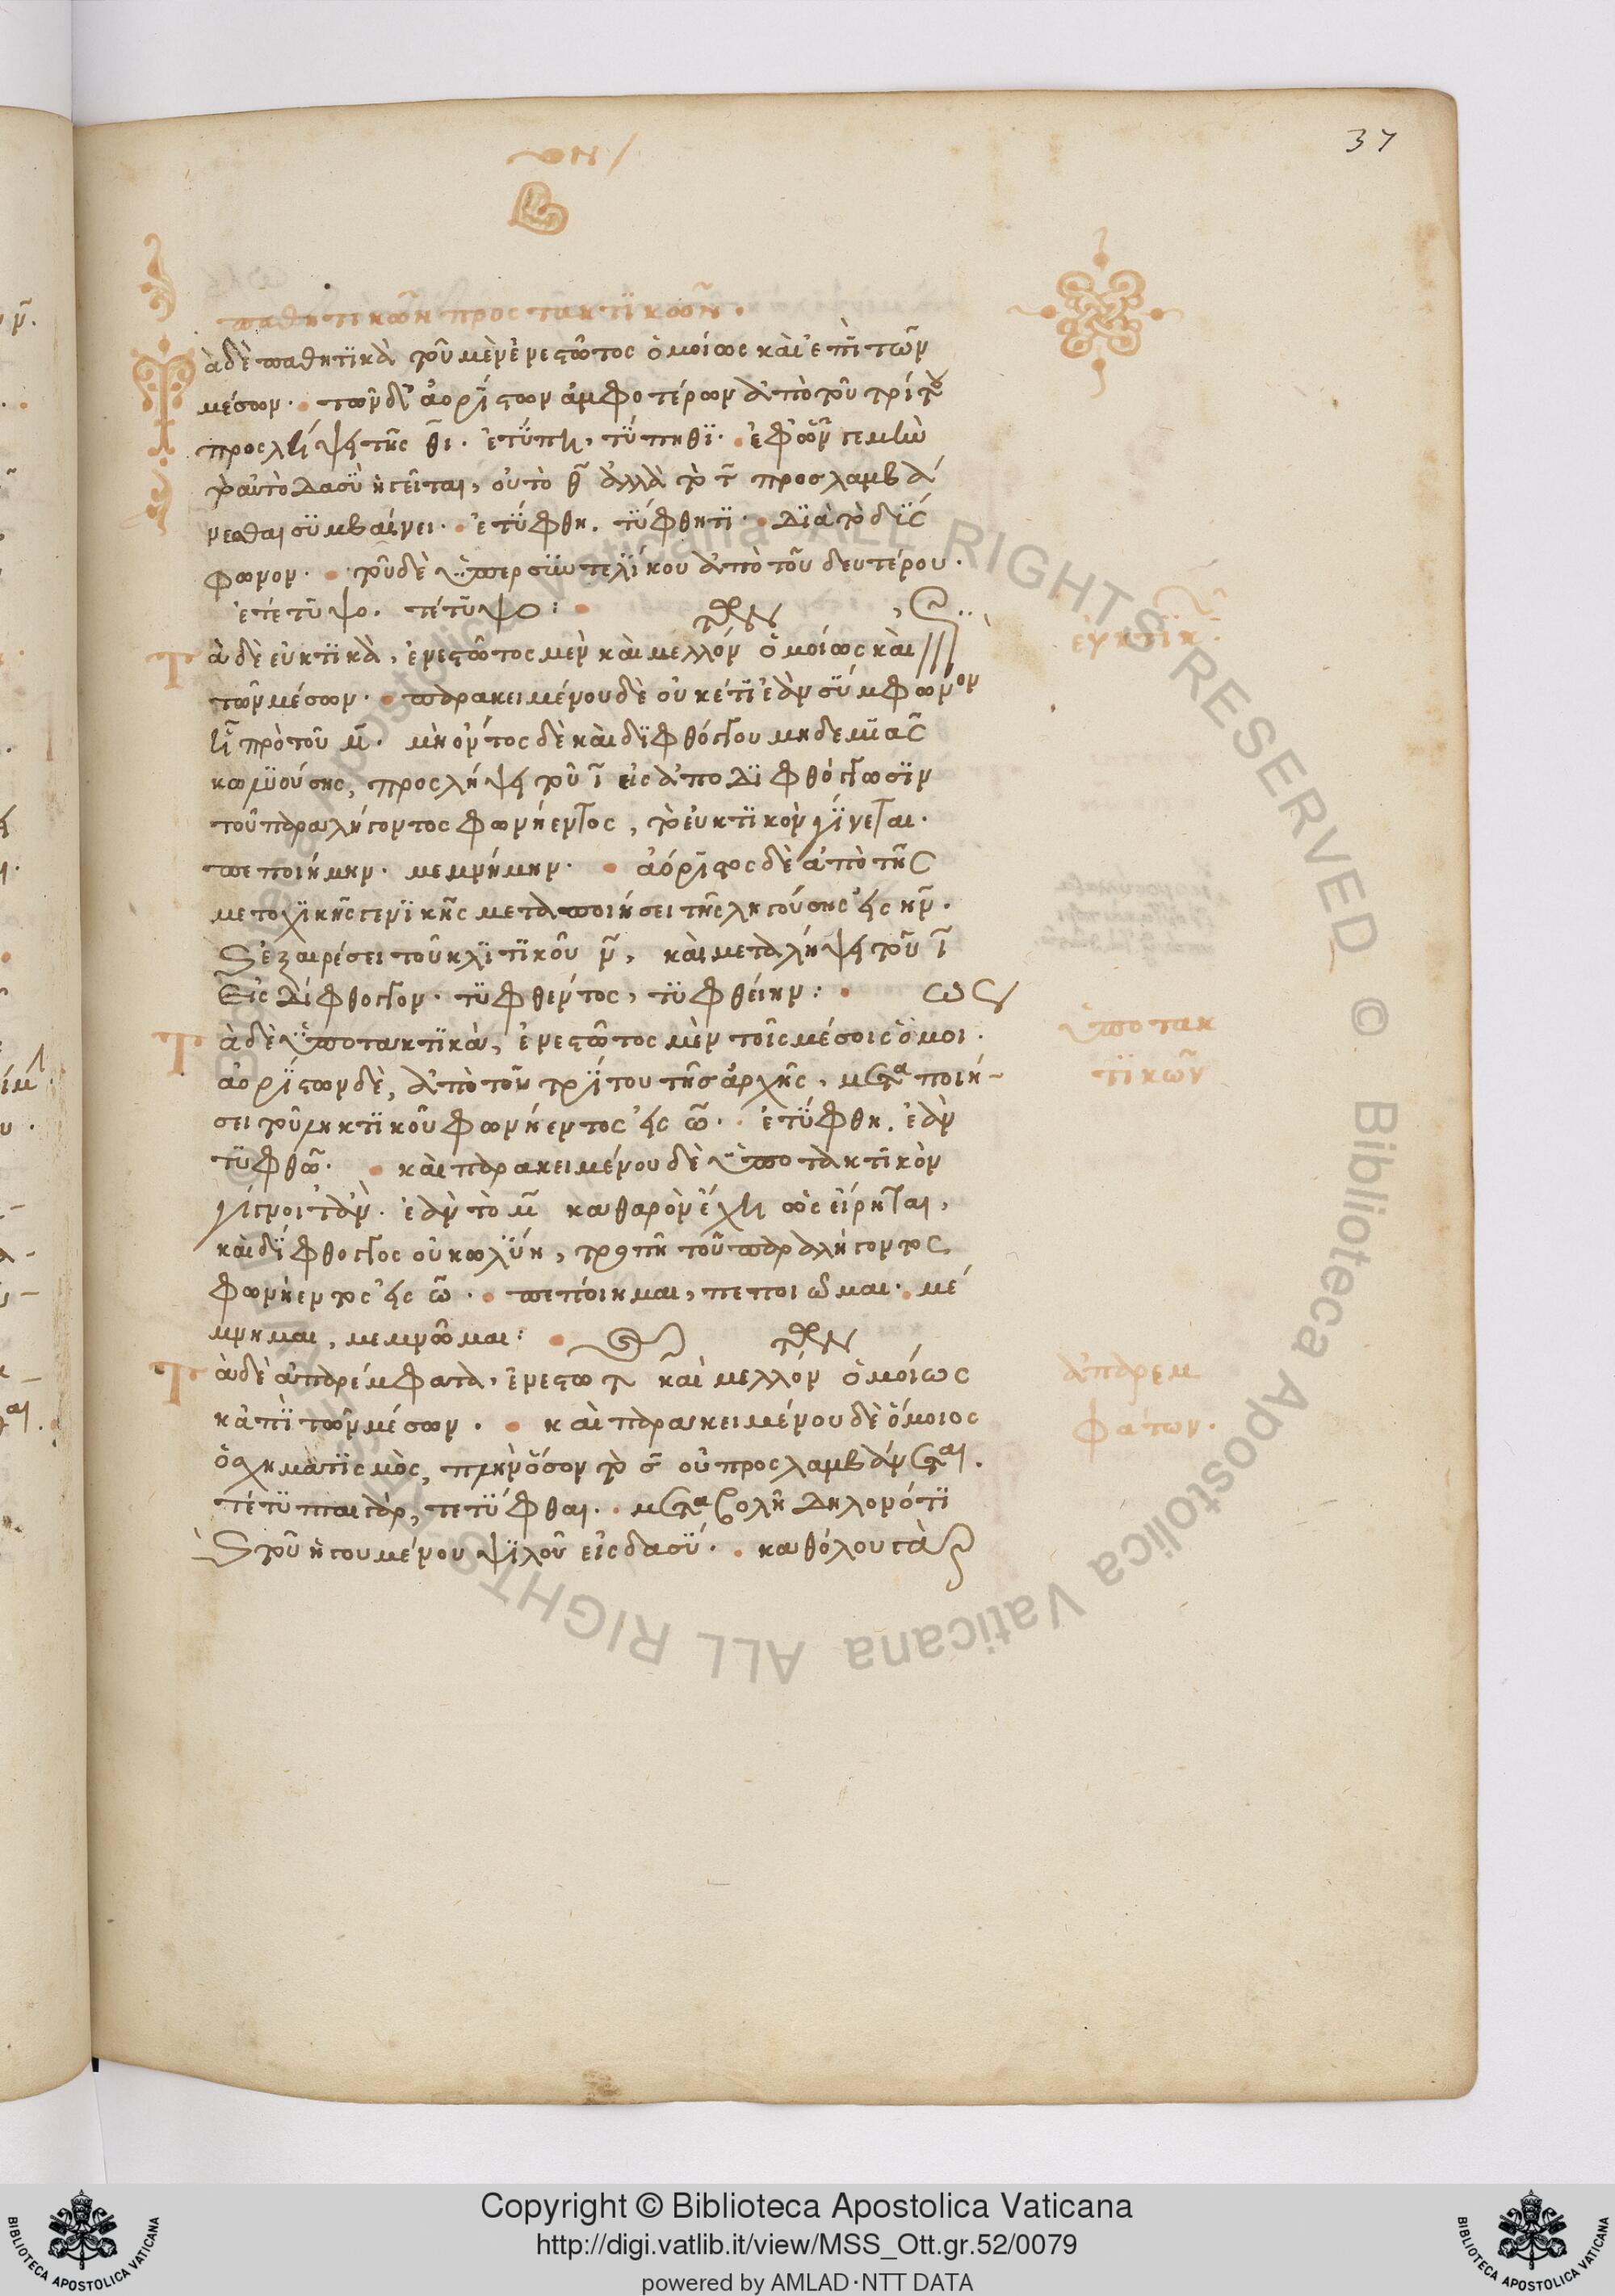 37
παθητικῶν προστακτικῶν.
Τὰ δὲ παθητικὰ τοῦ μὲν ἐνεστῶτος ὁμοίως καὶ ἐπὶ τῶν
μέσων. τῶν δ' ἀορίστων ἀμφοτέρων ἀπὸ τοῦ τρίτου
προσλήψει τῆς θι. ἐτύπη, τύπηθι. ἐφ' ὧν
τὸ αὐτὸ δασὺ ἡγεῖται, οὐ τὸ θ ἀλλὰ τὸ τ προσλαμβά
νεσθαι συμβαίνει. ἐτύφθη. τύφθητι. διὰ τὸ δύς
φωνον. τοῦ δὲ ὑπερσυντελίκου ἀπὸ τοῦ δευτέρου.
ἐτέτυψο. τέτυψο:
εὐκτικ
Τὰ δὲ εὐκτικὰ, ἐνεστῶτος μὲν καὶ μέλλον ὁμοίως καὶ
τῶν μέσων. παρακειμένου δὲ οὐκέτι ἐὰν σύμφωνον
ἦ πρὸ τοῦ μ. μὴ ὄντος δὲ καὶ διφθόγγου μηδεμιᾶς
κωλυούσης, προσλήψει τοῦ ι εἰς ἀποδιφθόγγωσιν
τοῦ παραλήγοντος φωνήεντος, τὸ εὐκτικὸν γίνεται.
πεποιήμην. μεμνήμην. ἀόριστος δὲ ἀπὸ τῆς
μετοχικῆς γενικῆς μεταποιήσει τῆς ληγούσης εἰς ην.
ἐξαιρέσει τοῦ κλιτικοῦ ν, καὶ μεταλήψει τοῦ ι
εἰς δίφθογγον. τυφθέντος, τυφθείην:
ὑποτακ
τικῶν
Τὰ δὲ ὑποτακτικὰ, ἐνεστῶτος μὲν τοῖς μέσοις ὁμοι.
ἀορίστων δὲ, ἀπὸ τοῦ τρίτου τῆς ἀρχῆς, μεταποιή-
σει τοῦ ληκτικοῦ φωνήεντος εἰς ω. ἐτύφθη. ἐὰν
τυφθῶ. καὶ παρακειμένου δὲ ὑποτακτικὸν
γένοιτ' ἂν. ἐὰν τὸ μ καθαρὸν ἔχη ὡς εἴρηται,
καὶ δίφθογγος οὐ κωλύη, τροπῆ τοῦ παραλήγοντος
φωνήεντος εἰς ω. πεποίημαι, πεποιῶμαι. μέ
μνημαι, μεμνῶμαι:
ἀπαρεμ
φάτων.
Τὰ δὲ ἀπαρέμφατα, ἐνεστωτ καὶ μελλόν ὁμοίως
κἀπὶ τῶν μέσων. καὶ παρακειμένου δὲ ὅμοιος
ὁ σχηματισμὸς, πλὴν ὅσον τὸ σ οὐ προσλαμβάνεται.
τέτυπται γὰρ, τετύφθαι. μεταβολῆ δηλονότι
τοῦ ἡγουμένου ψιλοῦ εἰς δασύ. καθόλου τὰ
Copyright © Biblioteca Apostolica Vaticana
http://digi.vatlib.it/view/MSS_Ott.gr.52/0079
powered by AMLAD·NTT DATA
BIBLIOTECA APOSTOLICA VATICANA
BIBLIOTECA APOSTOLICA VATICANA
© Biblioteca Apostolica Vaticana ALL RIGHTS RESERVED © Biblioteca Apostolica Vaticana ALL RIGHTS RESERVED